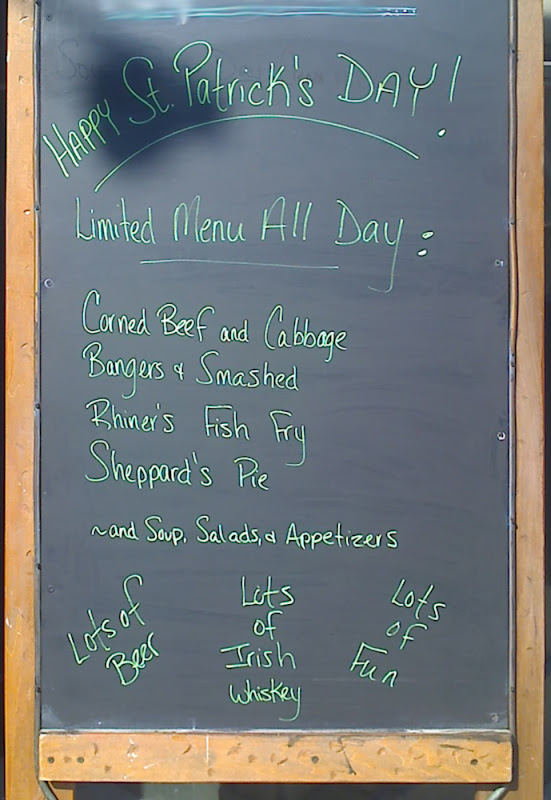 Happy St. Patrick's DAY!
Limited Menu All Day:
Corned Beef and Cabbage
Bangers & Smashed
Rhiner's Fish Fry
Sheppard's Pie
~and Soup, Salads, & Appetizers
Lots of
Beer
Lots
of
Irish
Whiskey
Lots
of
Fun